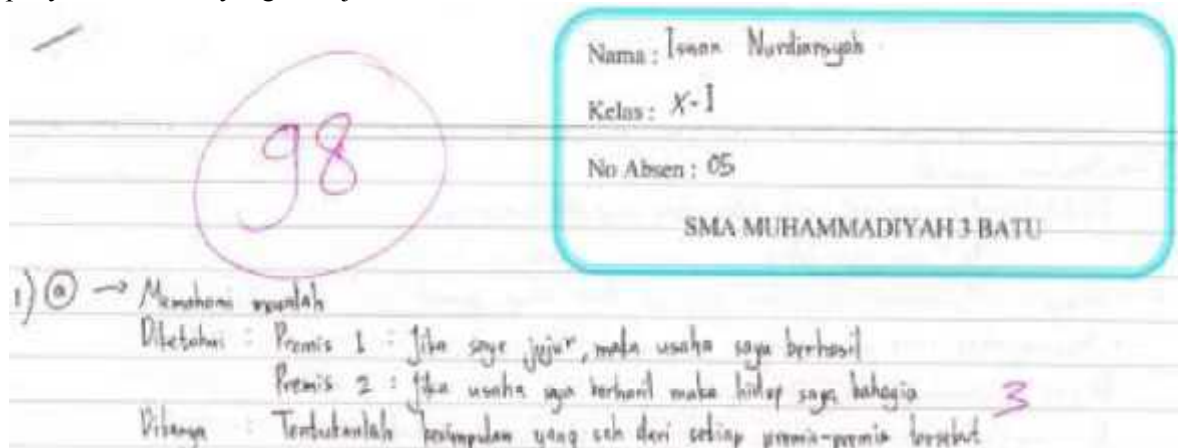 Nama : Isnan Nurdiansyah
Kelas : X-I
No Absen : 05
SMA MUHAMMADIYAH 3 BATU
98
1) (a) → Memahami masalah
Diketahui : Premis 1 : Jika saya jujur, maka usaha saya berhasil
Premis 2 : Jika usaha saya berhasil maka hidup saya bahagia
3
Ditanya : Tentukanlah kesimpulan yang sah dari setiap premis-premis tersebut